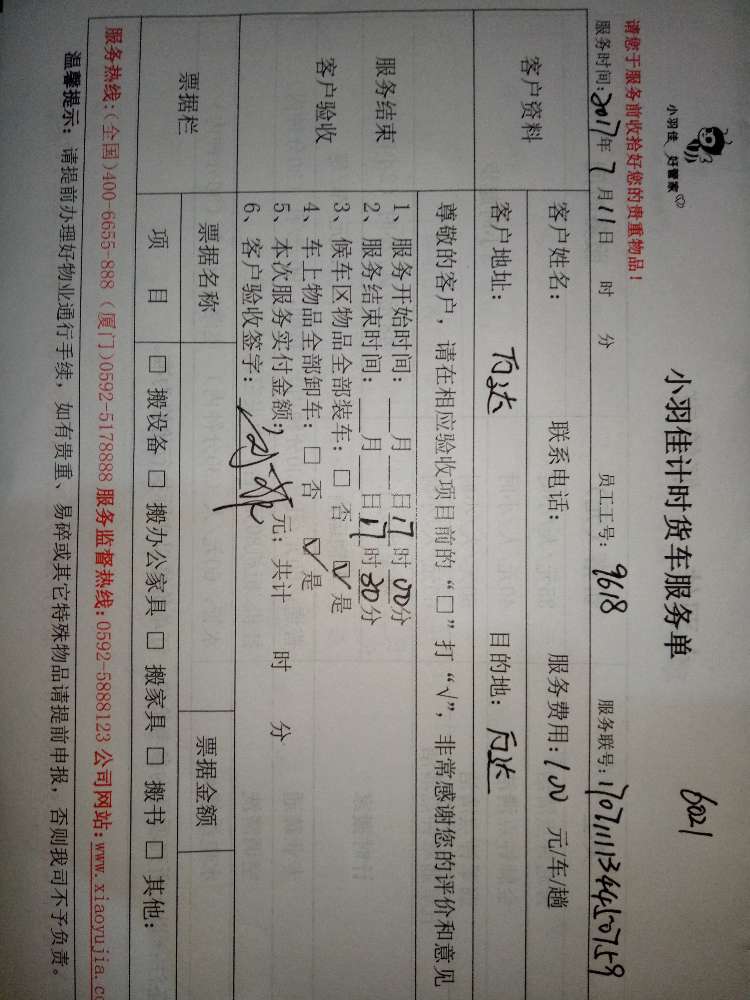 小羽佳 好管家
小羽佳计时货车服务单
6021
请您于服务前收拾好您的贵重物品！
服务时间：2017年7月11日 时 分 员工工号：9618 服务联号：
客户资料
客户姓名： 联系电话： 服务费用：100 元/车/趟
客户地址：万达 目的地：万达
服务结束
客户验收
尊敬的客户，请在相应验收项目前的“□”打“√”，非常感谢您的评价和意见
1、服务开始时间：___月___日17时00分
2、服务结束时间：___月___日17时30分
3、候车区物品全部装车：□ 否 ☑ 是
4、车上物品全部卸车：□ 否 ☑ 是
5、本次服务实付金额： 元；共计 时 分
6、客户验收签字：
票据栏
票据名称 票据金额
项 目 □ 搬设备 □ 搬办公家具 □ 搬家具 □ 搬书 □ 其他：
服务热线：(全国)400-6655-888 (厦门)0592-5178888 服务监督热线：0592-5888123 公司网站：www.xiaoyujia.co
温馨提示：请提前办理好物业通行手续，如有贵重、易碎或其它特殊物品请提前申报，否则我司不予负责。